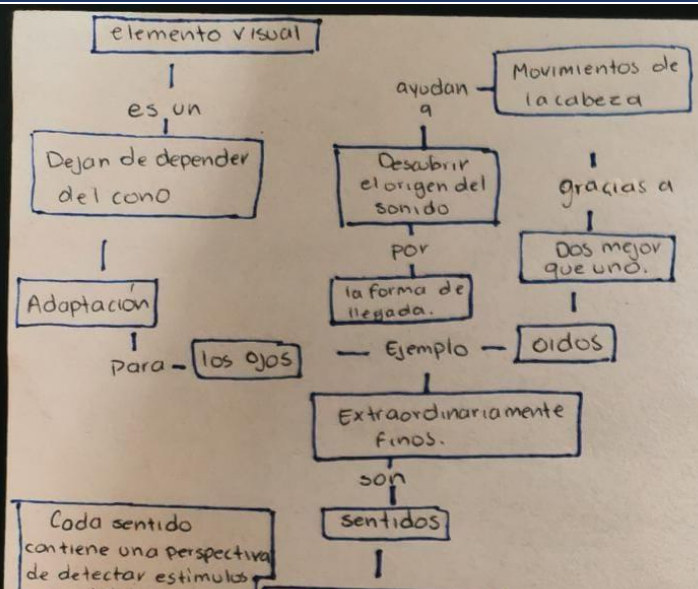 elemento visual
es un
Dejan de depender
del cono
Adaptación
para
los ojos
ayudan
a
Movimientos de
la cabeza
Descubrir
el origen del
sonido
gracias a
por
Dos mejor
que uno.
la forma de
llegada.
Ejemplo
oidos
Extraordinariamente
Finos.
son
sentidos
Cada sentido
contiene una perspectiva
de detectar estimulos